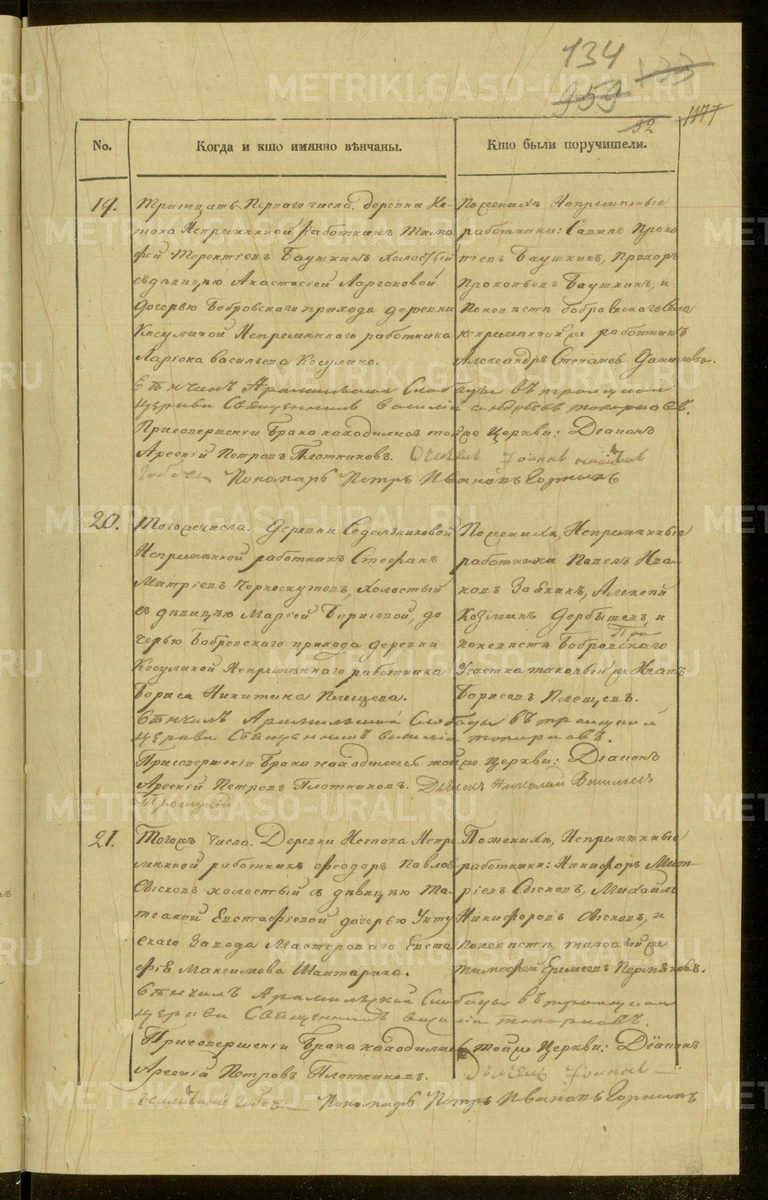 134
133
959
52
1177
No.
Когда и кто имянно вѣнчаны.
Кто были поручители.
19.
Тритцать Перваго числа. деревни Ис-
тока Непремѣнной работникъ Тимо
фей Терентьевъ Баушкинъ холостый
съ девицею Анастасіей Ларіоновой
дочерью Бобровскаго прихода деревни
Косулиной Непремѣннаго работника
Ларіона Васильева Косулина.
По женихѣ Непремѣнные
работники: Савинъ Проко
пьевъ Баушкинъ, Прохоръ
Прокопьевъ Баушкинъ, и
По невѣстѣ бобровскаго села
непремѣнной же работникъ
Александръ Степановъ
Вѣнчалъ Арамильской Слободы въ троицкой
церкви Священникъ Василій Андреевъ топорковъ.
При совершеніи Брака находились той же Церкви: Діаконъ
Арсеній Петровъ Плотниковъ.
Пономарь Петръ Ивановъ Горныхъ
20.
Того же числа. Деревни Седельниковой
Непремѣнной работникъ Стефанъ
Митріевъ Черноскутовъ, холостый
съ дѣвицею Марѳей Борисовой, до
черью Бобровского прихода деревни
Косулиной Непремѣннаго работника
Бориса Никитина Плещева.
По женихѣ, Непремѣнные
работники Павелъ Ива-
новъ Забнинъ, Алексей
Козминъ Дербышевъ, и
По невѣстѣ Бобровскаго
Участка таковый же Иванъ
Борисовъ Плещевъ.
Вѣнчалъ Арамильской Слободы въ троицкой
церкви Священникъ Василій топорковъ.
При совершеніи Брака находились той же Церкви: Діаконъ
Арсеній Петровъ Плотниковъ. Дьячекъ Николай Васильевъ
Троицкій
21.
Того же числа. Деревни Истока Непре
мѣнной работникъ Феодоръ Павловъ
Свѣсковъ холостый съ дѣвицею Та-
тианой Евстафіевой дочерью Укту
скаго Завода Мастероваго Евста
фія Максимова Шантарина.
По женихѣ, Непремѣнные
работники: Никифоръ Мит-
ріевъ Свѣсковъ, Михайло
Никифоровъ Свѣсковъ, и
По невѣстѣ, таковый же
тимофей Еремеевъ Пермяковъ.
Вѣнчалъ Арамильской Слободы въ троицкой
церкви Священникъ Василій топорковъ.
При совершеніи Брака находились той же Церкви: Діаконъ
Арсеній Петровъ Плотниковъ.
Пономарь Петръ Ивановъ Горныхъ
METRIKI.GASO-URAL.RU